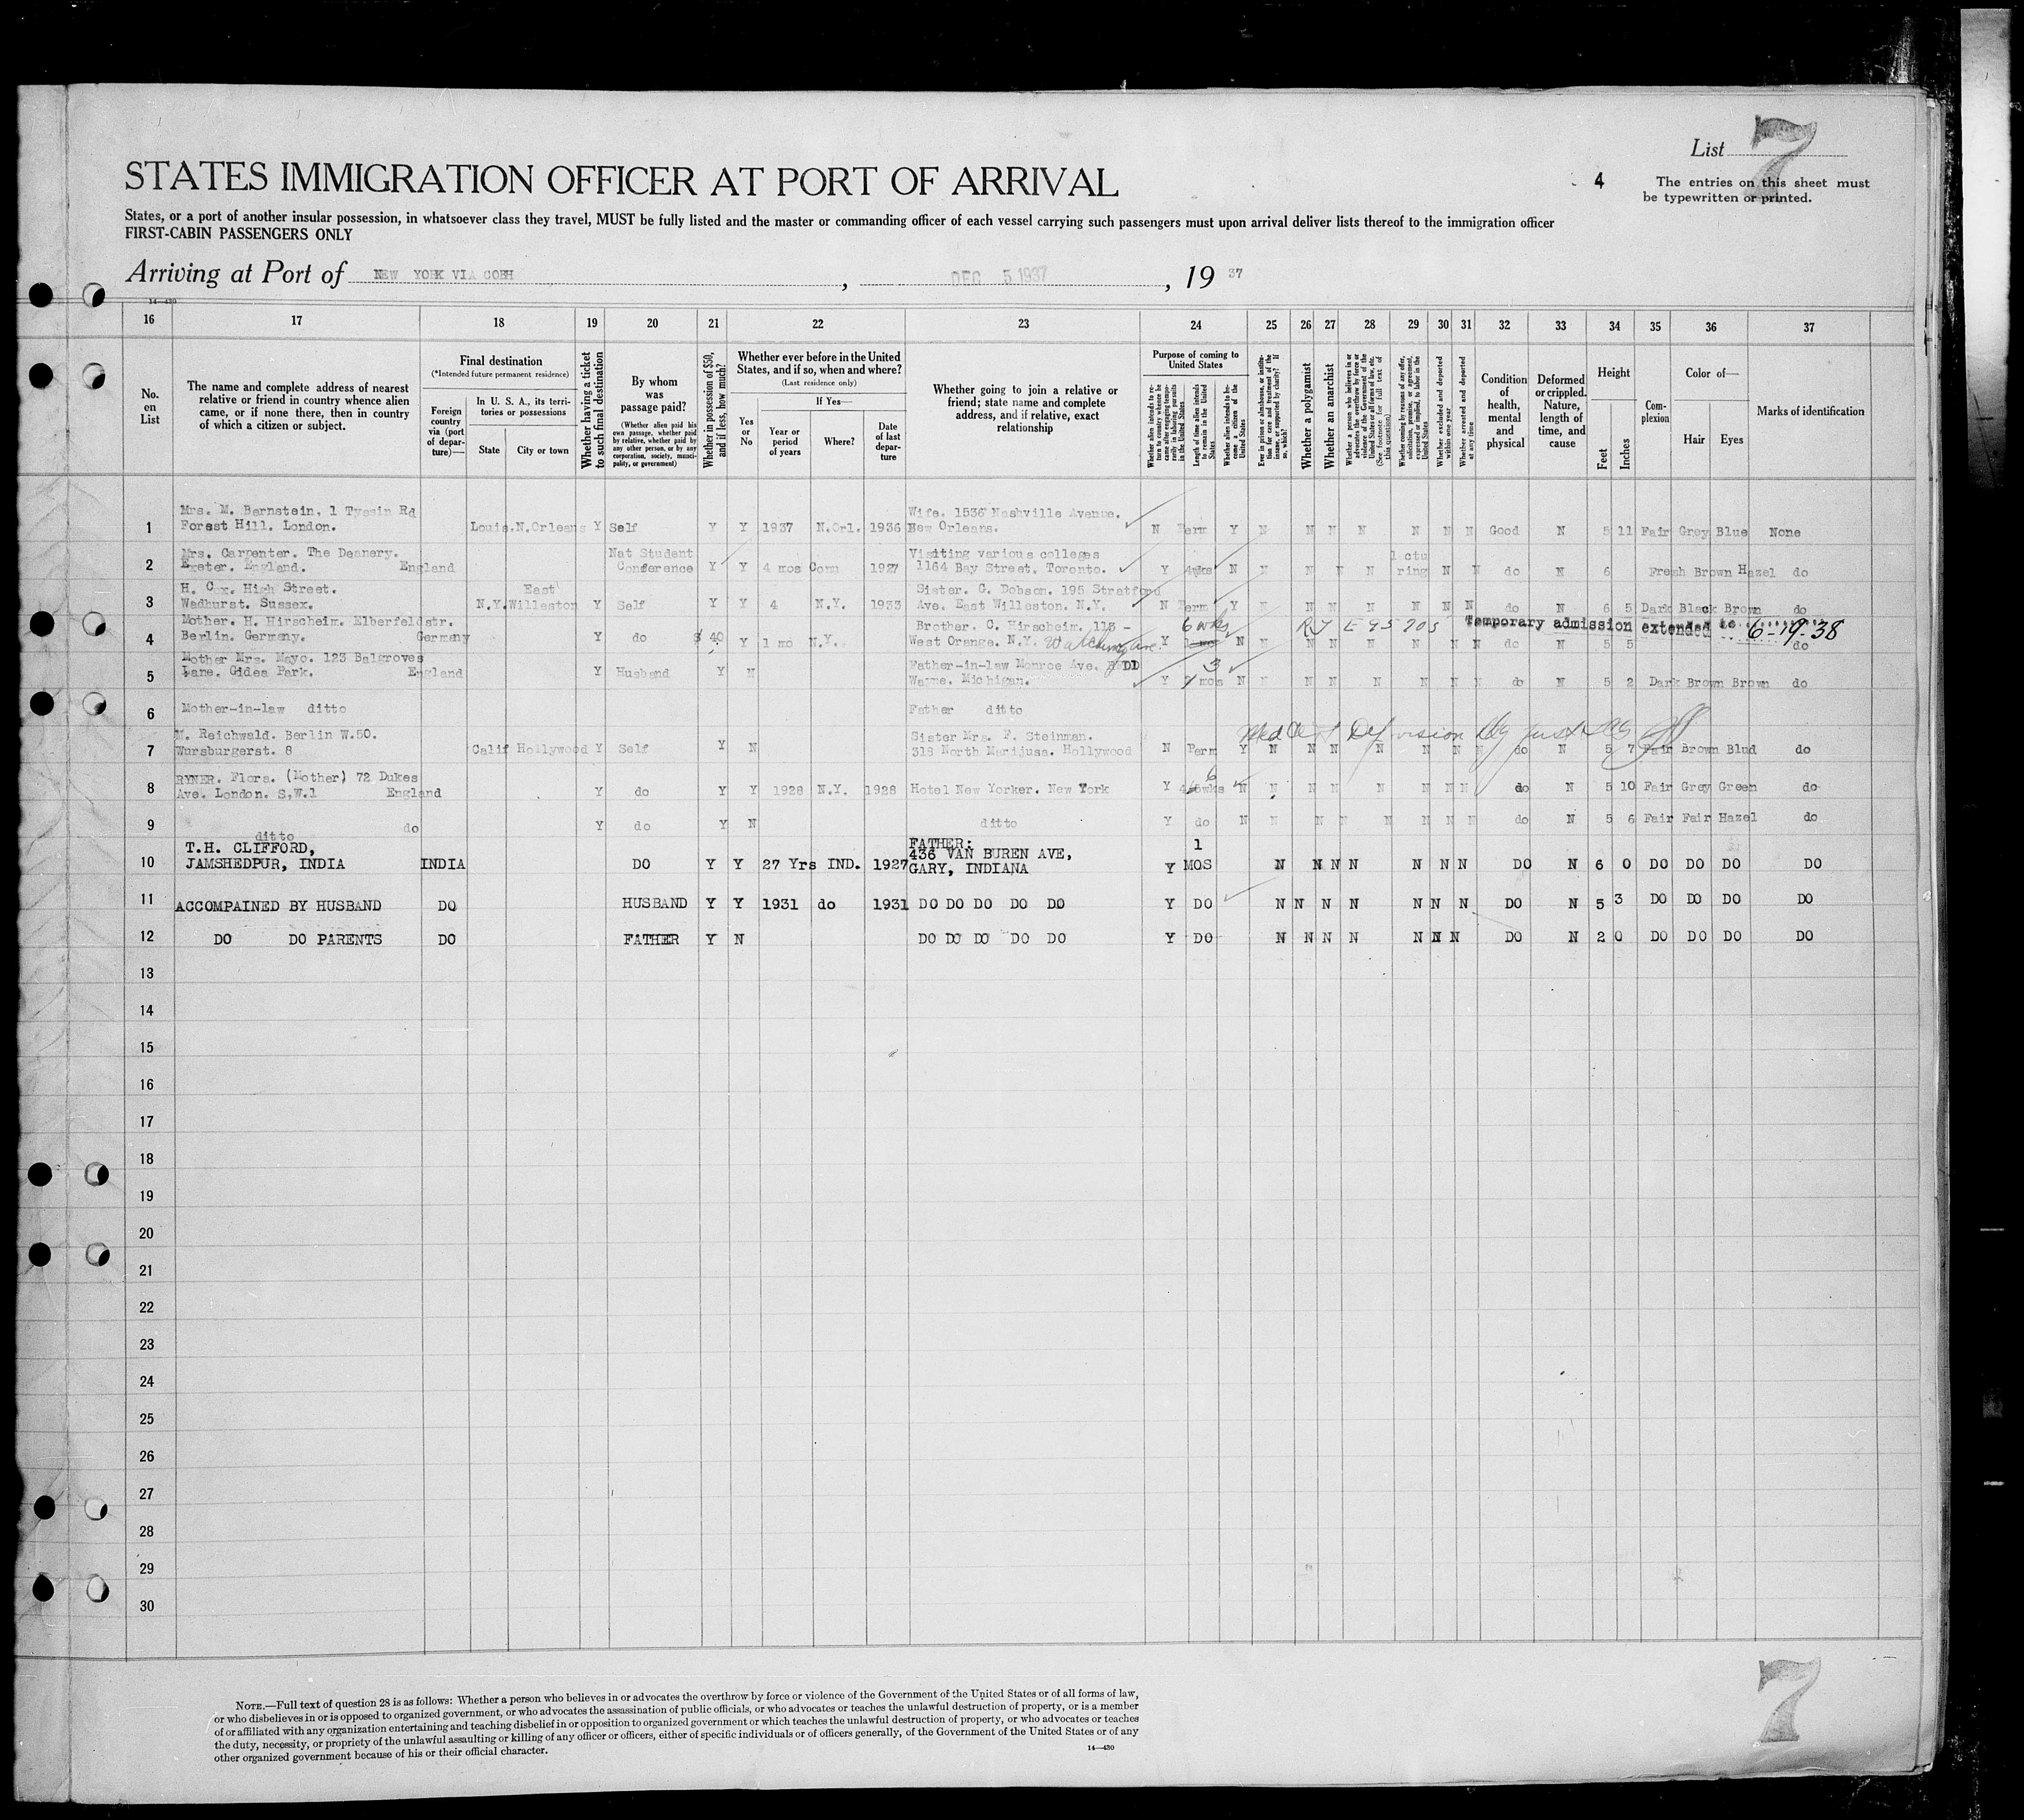 List 7
STATES IMMIGRATION OFFICER AT PORT OF ARRIVAL
4
The entries on this sheet must
be typewritten or printed.
States, or a port of another insular possession, in whatsoever class they travel, MUST be fully listed and the master or commanding officer of each vessel carrying such passengers must upon arrival deliver lists thereof to the immigration officer
FIRST-CABIN PASSENGERS ONLY
Arriving at Port of NEW YORK VIA COBH, DEC 5 1937, 19 37
14—430
16 17 18 19 20 21 22 23 24 25 26 27 28 29 30 31 32 33 34 35 36 37
No. on List
The name and complete address of nearest relative or friend in country whence alien came, or if none there, then in country of which a citizen or subject.
Final destination
(*Intended future permanent residence)
Foreign country via (port of departure)—
In U. S. A., its territories or possessions
State
City or town
Whether having a ticket to such final destination
By whom was passage paid?
(Whether alien paid his own passage, whether paid by relative, whether paid by any other person, or by any corporation, society, municipality, or government)
Whether in possession of $50, and if less, how much?
Whether ever before in the United States, and if so, when and where?
(Last residence only)
Yes or No
If Yes—
Year or period of years
Where?
Date of last departure
Whether going to join a relative or friend; state name and complete address, and if relative, exact relationship
Purpose of coming to United States
Whether alien intends to return to country whence he came after engaging temporarily in laboring pursuits in the United States
Length of time alien intends to remain in the United States
Whether alien intends to become a citizen of the United States
Ever in prison or almshouse, or institution for care and treatment of the insane, or supported by charity? If so, which?
Whether a polygamist
Whether an anarchist
Whether a person who believes in or advocates the overthrow by force or violence of the Government of the United States or all forms of law, etc. (See footnote for full text of this question)
Whether coming by reason of any offer, solicitation, promise, or agreement, expressed or implied, to labor in the United States
Whether excluded and deported within one year
Whether arrested and deported at any time
Condition of health, mental and physical
Deformed or crippled. Nature, length of time, and cause
Height
Feet
Inches
Complexion
Color of—
Hair
Eyes
Marks of identification
Mrs. M. Bernstein, 1 Tyssin Rd Wife. 1536 Nashville Avenue.
1 Forest Hill. London. Louis. N.Orleans Y Self Y Y 1937 N.Orl. 1936 New Orleans. N Perm Y N N N N N N N Good N 5 11 Fair Grey Blue None
Mrs. Carpenter. The Deanery. Nat Student Visiting various colleges lectu
2 Exeter. England. England Conference Y Y 4 mos Conn 1927 1164 Bay Street. Toronto. Y 4wks N N N N N ring N N do N 6 Fresh Brown Hazel do
H. Cox. High Street. East Sister. G. Dobson. 195 Stratford
3 Wadhurst. Sussex. N.Y. Williston Y Self Y Y 4 N.Y. 1933 Ave. East Willeston. N.Y. N Perm Y N N N N N N N do N 6 5 Dark Black Brown do
Mother. H. Hirscheim. Elberfeldstr. Brother. C. Hirscheim. 115 - 6 wks RJ E 95705 Temporary admission extended to 6-19-38
4 Berlin. Germany. Germany Y do $ 40 Y 1 mo N.Y. West Orange. N.Y. Y N N N N N N N N do N 5 5 do
Mother Mrs. Mayo. 123 Balgroves Father-in-law Monroe Ave. 3
5 Lane. Gidea Park. England Y Husband Y N Wayne. Michigan. Y mos N N N N N N N N do N 5 2 Dark Brown Brown do
6 Mother-in-law ditto Father ditto
M. Reichwald. Berlin W.50. Sister Mrs. F. Steinman. Med Cert Def vision
7 Wursburgerst. 8 Calif Hollywood Y Self Y N 318 North Marijusa. Hollywood N Perm Y N N N N N N N do N 5 7 Fair Brown Blud do
RYNER. Flora. (Mother) 72 Dukes 6
8 Ave. London. S.W.1 England Y do Y Y 1928 N.Y. 1928 Hotel New Yorker. New York Y wks N N N N N N N N do N 5 10 Fair Grey Green do
9 ditto do Y do Y N ditto Y do N N N N N N N N do N 5 6 Fair Fair Hazel do
T.H. CLIFFORD, FATHER: 1
436 VAN BUREN AVE,
10 JAMSHEDPUR, INDIA INDIA DO Y Y 27 Yrs IND. 1927 GARY, INDIANA Y MOS N N N N N N N DO N 6 0 DO DO DO DO
11 ACCOMPAINED BY HUSBAND DO HUSBAND Y Y 1931 do 1931 DO DO DO DO DO Y DO N N N N N N N DO N 5 3 DO DO DO DO
12 DO DO PARENTS DO FATHER Y N DO DO DO DO DO Y DO N N N N N N N DO N 2 0 DO DO DO DO
13
14
15
16
17
18
19
20
21
22
23
24
25
26
27
28
29
30
NOTE.—Full text of question 28 is as follows: Whether a person who believes in or advocates the overthrow by force or violence of the Government of the United States or of all forms of law,
or who disbelieves in or is opposed to organized government, or who advocates the assassination of public officials, or who advocates or teaches the unlawful destruction of property, or is a member
of or affiliated with any organization entertaining and teaching disbelief in or opposition to organized government or which teaches the unlawful destruction of property, or who advocates or teaches
the duty, necessity, or propriety of the unlawful assaulting or killing of any officer or officers, either of specific individuals or of officers generally, of the Government of the United States or of any
other organized government because of his or their official character.
14—430
7